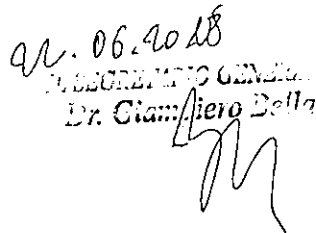 22.06.2018
IL SEGRETARIO GENERALE
Dr. Giampiero Della